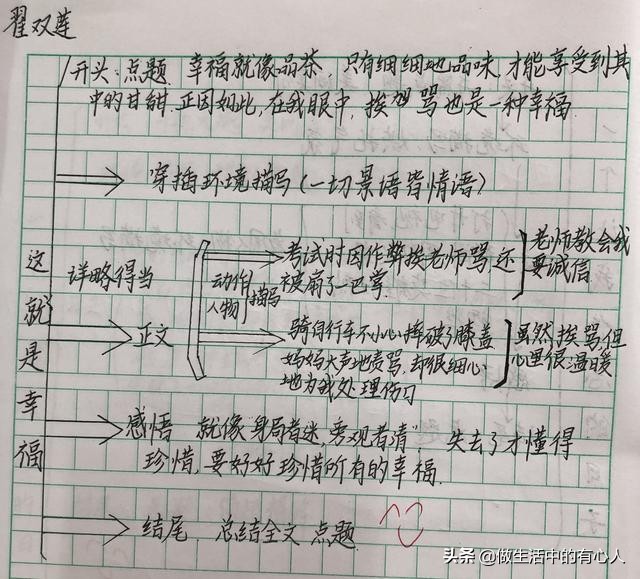 翟双莲
开头：点题 幸福就像品茶，只有细细地品味，才能享受到其
中的甘甜.正因如此，在我眼中，挨骂也是一种幸福.
穿插环境描写（一切景语皆情语）
这就是幸福
详略得当
正文
动作
人物
描写
考试时因作弊挨老师骂，还
被扇了一巴掌.
老师教会我
要诚信
骑自行车不小心摔破了膝盖
妈妈大声地责骂，却很细心
地为我处理伤习
虽然挨骂，但
心里很温暖
感悟 就像"身局者迷，旁观者清"，失去了才懂得
珍惜，要好好珍惜所有的幸福.
结尾 总结全文 点题
头条 @做生活中的有心人